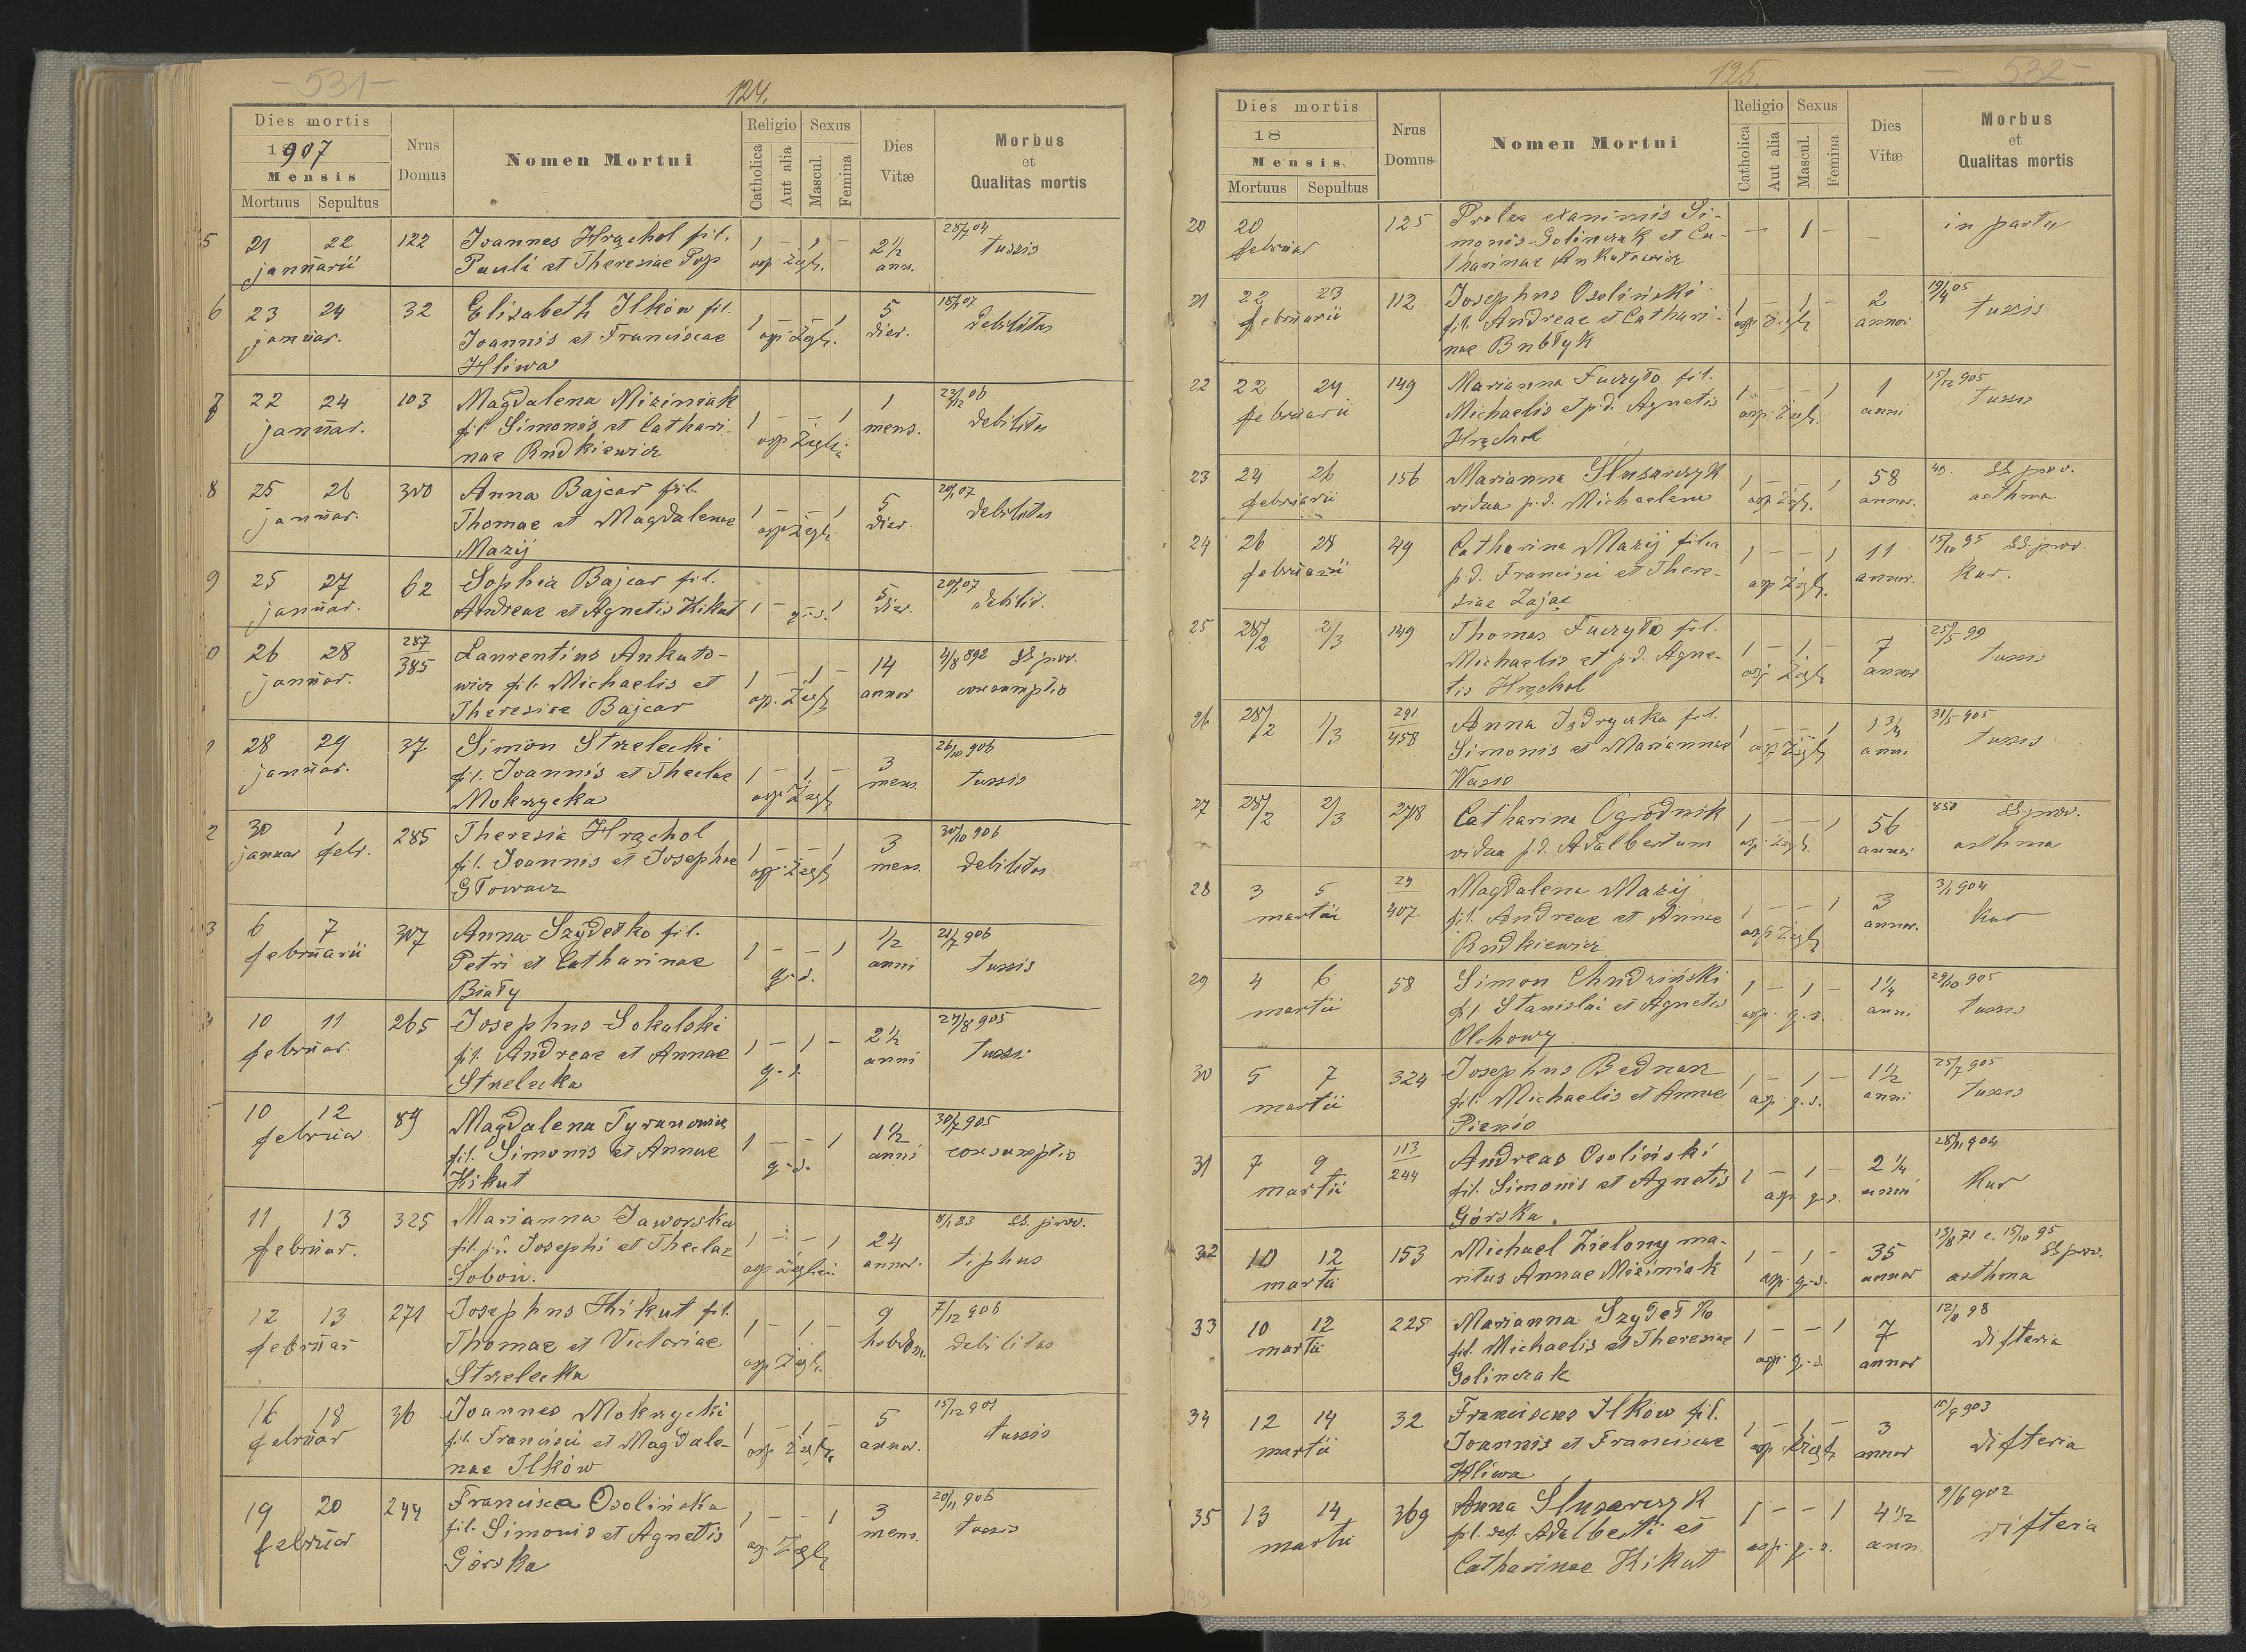 - 531 -
124.
Dies mortis
1907
Mensis
Mortuus Sepultus
Nrus
Domus
Nomen Mortui
Religio
Catholica
Aut alia
Sexus
Mascul.
Femina
Dies
Vitæ
Morbus
et
Qualitas mortis
5 21 22 122 Joannes Hrąchol fil. 1 - 1 - 2½ 28/7 04
januarii Pauli et Theresiae Pop asp. Żegl. ann. tussis
6 23 24 32 Elisabeth Ilków fil. 1 - - 1 5 18/1 07
januar. Joannis et Franciscae asp. Żegl. dier. debilitas
Hliwa
7 22 24 103 Magdalena Miziniak 1 - - 1 1 23/12 06
januar. fil. Simonis et Cathari- asp. Żegl. mens. debilitas
nae Rudkiewicz
8 25 26 300 Anna Bajcar fil. 1 - - 1 5 20/1 07
januar. Thomae et Magdalenae asp. Żegl. dier. debilitas
Mazij
9 25 27 62 Sophia Bajcar fil. 1 - - 1 5 20/1 07
januar. Andreae et Agnetis Kikut g.s. dier. debilit.
0 26 28 287/385 Laurentius Ankuto- 1 - 1 - 14 4/8 892 SS. prov.
januar. wicz fil. Michaelis et asp. Żegl. annor consumptio
Theresiae Bajcar
1 28 29 37 Simon Strzelecki 1 - 1 - 3 26/10 906
januar. fil. Joannis et Theclae asp. Żegl. mens. tussis
Mokrzycka
2 30 1 285 Theresia Hrąchol 1 - - 1 3 30/10 906
januar febr. fil. Joannis et Josephae asp. Żegl. mens. debilitas
Głowacz
3 6 7 307 Anna Szydełko fil. 1 - - 1 ½ 21/7 906
februarii Petri et Catharinae g.s. anni tussis
Biały
10 11 265 Josephus Sokalski 1 - 1 - 2½ 27/8 905
februar. fil. Andreae et Annae g.s. anni tussis
Strzelecka
10 12 89 Magdalena Tyranowicz 1 - - 1 1½ 30/7 905
februar. fil. Simonis et Annae g.s. anni consumptio
Kikut
11 13 325 Marianna Jaworska 1 - - 1 24 8/1 83 SS. prov.
februar. fil. p.d. Josephi et Theclae asp. annor. tiphus
Soboń.
12 13 271 Josephus Kikut fil. 1 - 1 - 9 7/12 906
februar Thomae et Victoriae asp. Żegl. hebdom. debilitas
Strzelecka
16 18 36 Joannes Mokrzycki 1 - 1 - 5 15/12 901
februar fil. Francisci et Magdale- asp. Żegl. annor. tussis
nae Ilków
19 20 244 Francisca Osolińska 1 - - 1 3 20/11 906
februar fil. Simonis et Agnetis asp. Żegl. mens. tussis
Górska
125. - 532 -
Dies mortis
18
Mensis
Mortuus Sepultus
Nrus
Domus
Nomen Mortui
Religio
Catholica
Aut alia
Sexus
Mascul.
Femina
Dies
Vitæ
Morbus
et
Qualitas mortis
20 20 125 Proles exanimis Si- - 1 - - in partu
februar monis Golinczak et Ca-
tharinae Ankutowicz
21 22 23 112 Josephus Osoliński 1 - 1 - 2 19/4 05
februarii fil. Andreae et Cathari- asp. Żegl. annor. tussis
nae Bubłyk
22 22 24 149 Marianna Fuczyło fil. 1 - - 1 1 15/12 905
februarii Michaelis et p.d. Agnetis asp. Żegl. anni tussis
Hrąchol
23 24 26 156 Marianna Ślusarczyk 1 - - 1 58 49. SS. prov.
februarii vidua p.d. Michaelem asp. Żegl. annor. asthma
24 26 28 49 Catharina Mazij filia 1 - - 1 11 15/10 95 SS. prov.
februarii p.d. Francisci et There- asp. Żegl. annor. Kur.
siae Zając
25 28/2 2/3 149 Thomas Fuczyło fil. 1 - 1 - 7 25/5 99
Michaelis et p.d. Agne- asp. Żegl. annor tussis
tis Hrąchol
26 28/2 1/3 291/458 Anna Jądrycka fil. 1 - - 1 1¾ 31/5 905
Simonis et Mariannae asp. Żegl. anni tussis
27 28/2 2/3 278 Catharina Ogrodnik 1 - - 1 56 850 SS. prov.
vidua p.d. Adalbertum asp. Żegl. annor asthma
28 3 5 24/407 Magdalena Mazij 1 - - 1 3 3/1 904
martii fil. Andreae et Annae asp. Żegl. annor. Kur
Rudkiewicz
29 4 6 58 Simon Chudziński 1 - 1 - 1¼ 29/10 905
martii fil. Stanislai et Agnetis asp. g.s. anni tussis
Olchowy
30 5 7 324 Josephus Bednarz 1 - 1 - 1½ 25/7 905
martii fil. Michaelis et Annae asp. g.s. anni tussis
Pienió
31 7 9 113/244 Andreas Osoliński 1 - 1 - 2¼ 28/11 904
martii fil. Simonis et Agnetis asp. g.s. anni Kur
Górska.
32 10 12 153 Michael Zielony ma- 1 - 1 - 35 13/8 71 c. 15/10 95 SS. prov.
martii ritus Annae Miziniak asp. g.s. annor asthma
33 10 12 225 Marianna Szydełko 1 - - 1 7 98
martii fil. Michaelis et Theresiae asp. g.s. annor difteria
Golinczak
34 12 14 32 Franciscus Ilków fil. 1 - 1 - 3 15/9 903
martii Joannis et Franciscae asp. Żegl. annor difteria
Hliwa
35 13 14 369 Anna Slusarczyk 1 - - 1 4½ 9/6 902
martii fil. def. Adalberti et asp. g.s. ann. difteria
Catharinae Kikut